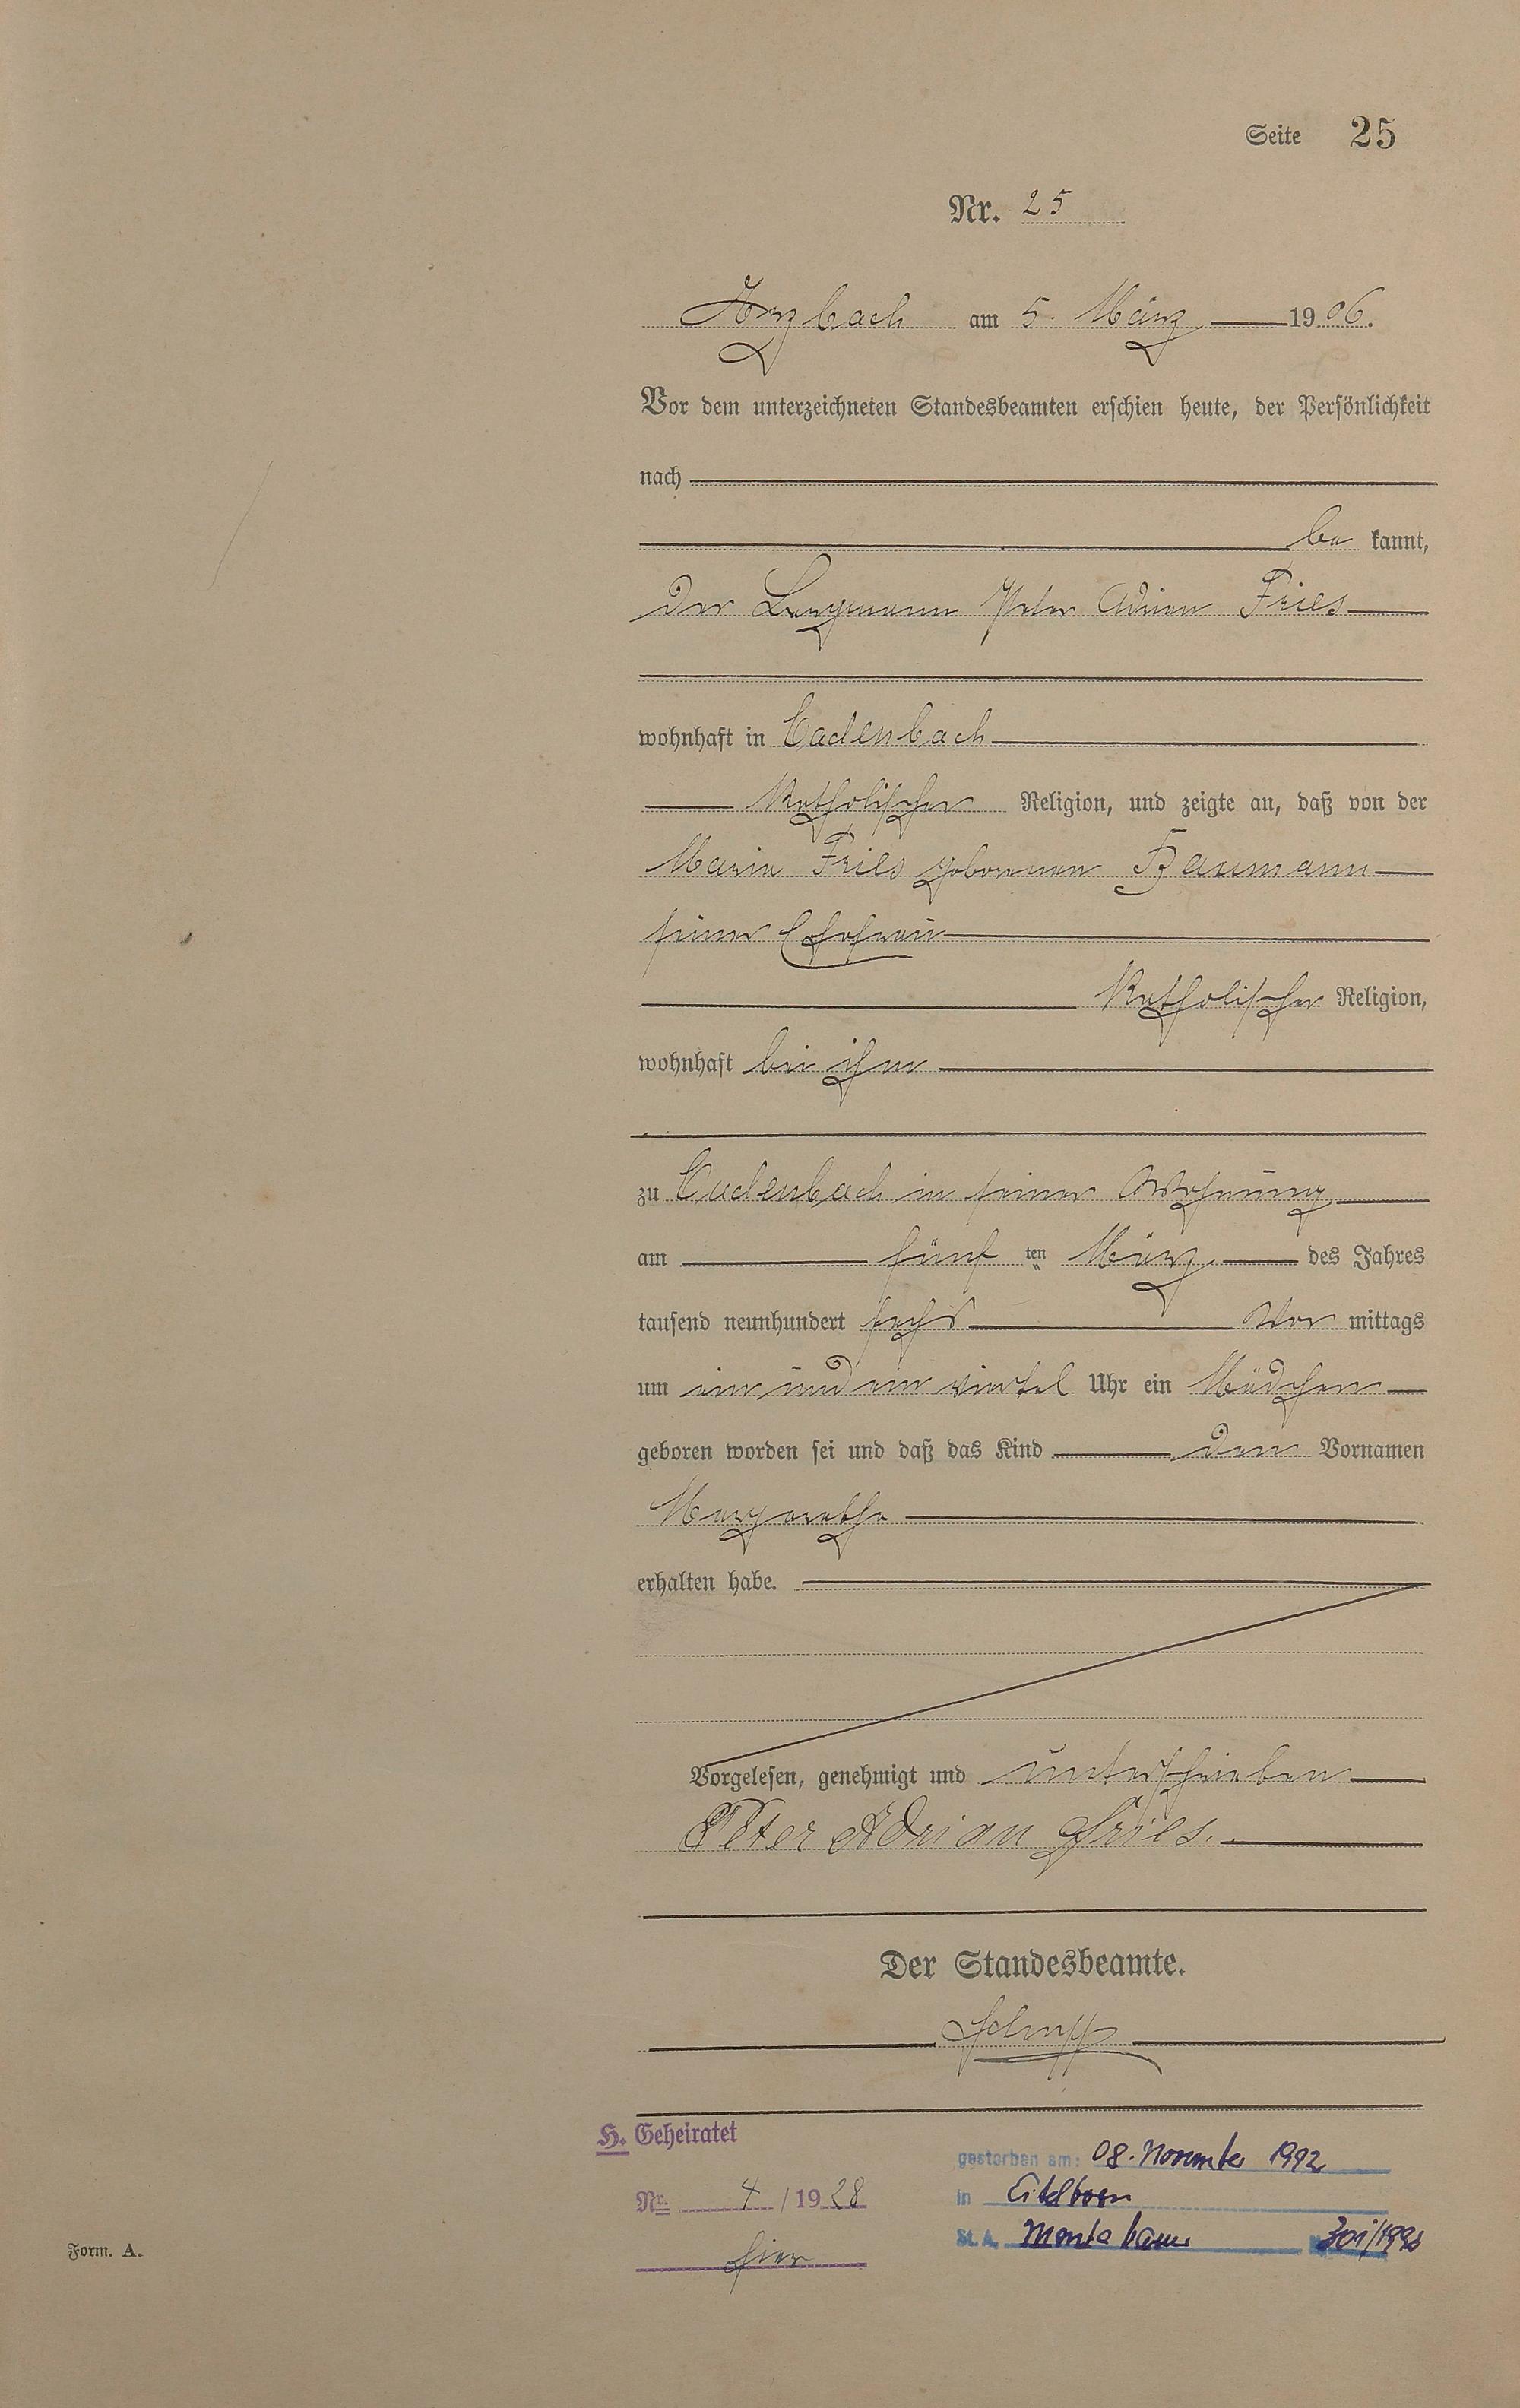 Seite 25
Nr. 25
Arzbach am 5. März 1906.
Vor dem unterzeichneten Standesbeamten erschien heute, der Persönlichkeit
nach
be kannt,
der Bergmann Peter Adrian Fries
wohnhaft in Cadenbach
katholischer Religion, und zeigte an, daß von der
Maria Fries geborenen Baumann
seiner Ehefrau
katholischer Religion,
wohnhaft bei ihm
zu Cadenbach in seiner Wohnung
am fünf ten März des Jahres
tausend neunhundert sechs Vor mittags
um ein und ein viertel Uhr ein Mädchen
geboren worden sei und daß das Kind den Vornamen
Margarethe
erhalten habe.
Vorgelesen, genehmigt und unterschrieben
Peter Adrian Fries.
Der Standesbeamte.
H. Geheiratet
Nr. 4 / 1928
hier
gestorben am: 08. November 1992
in Eitelborn
St. A. Montabaur
Form. A.